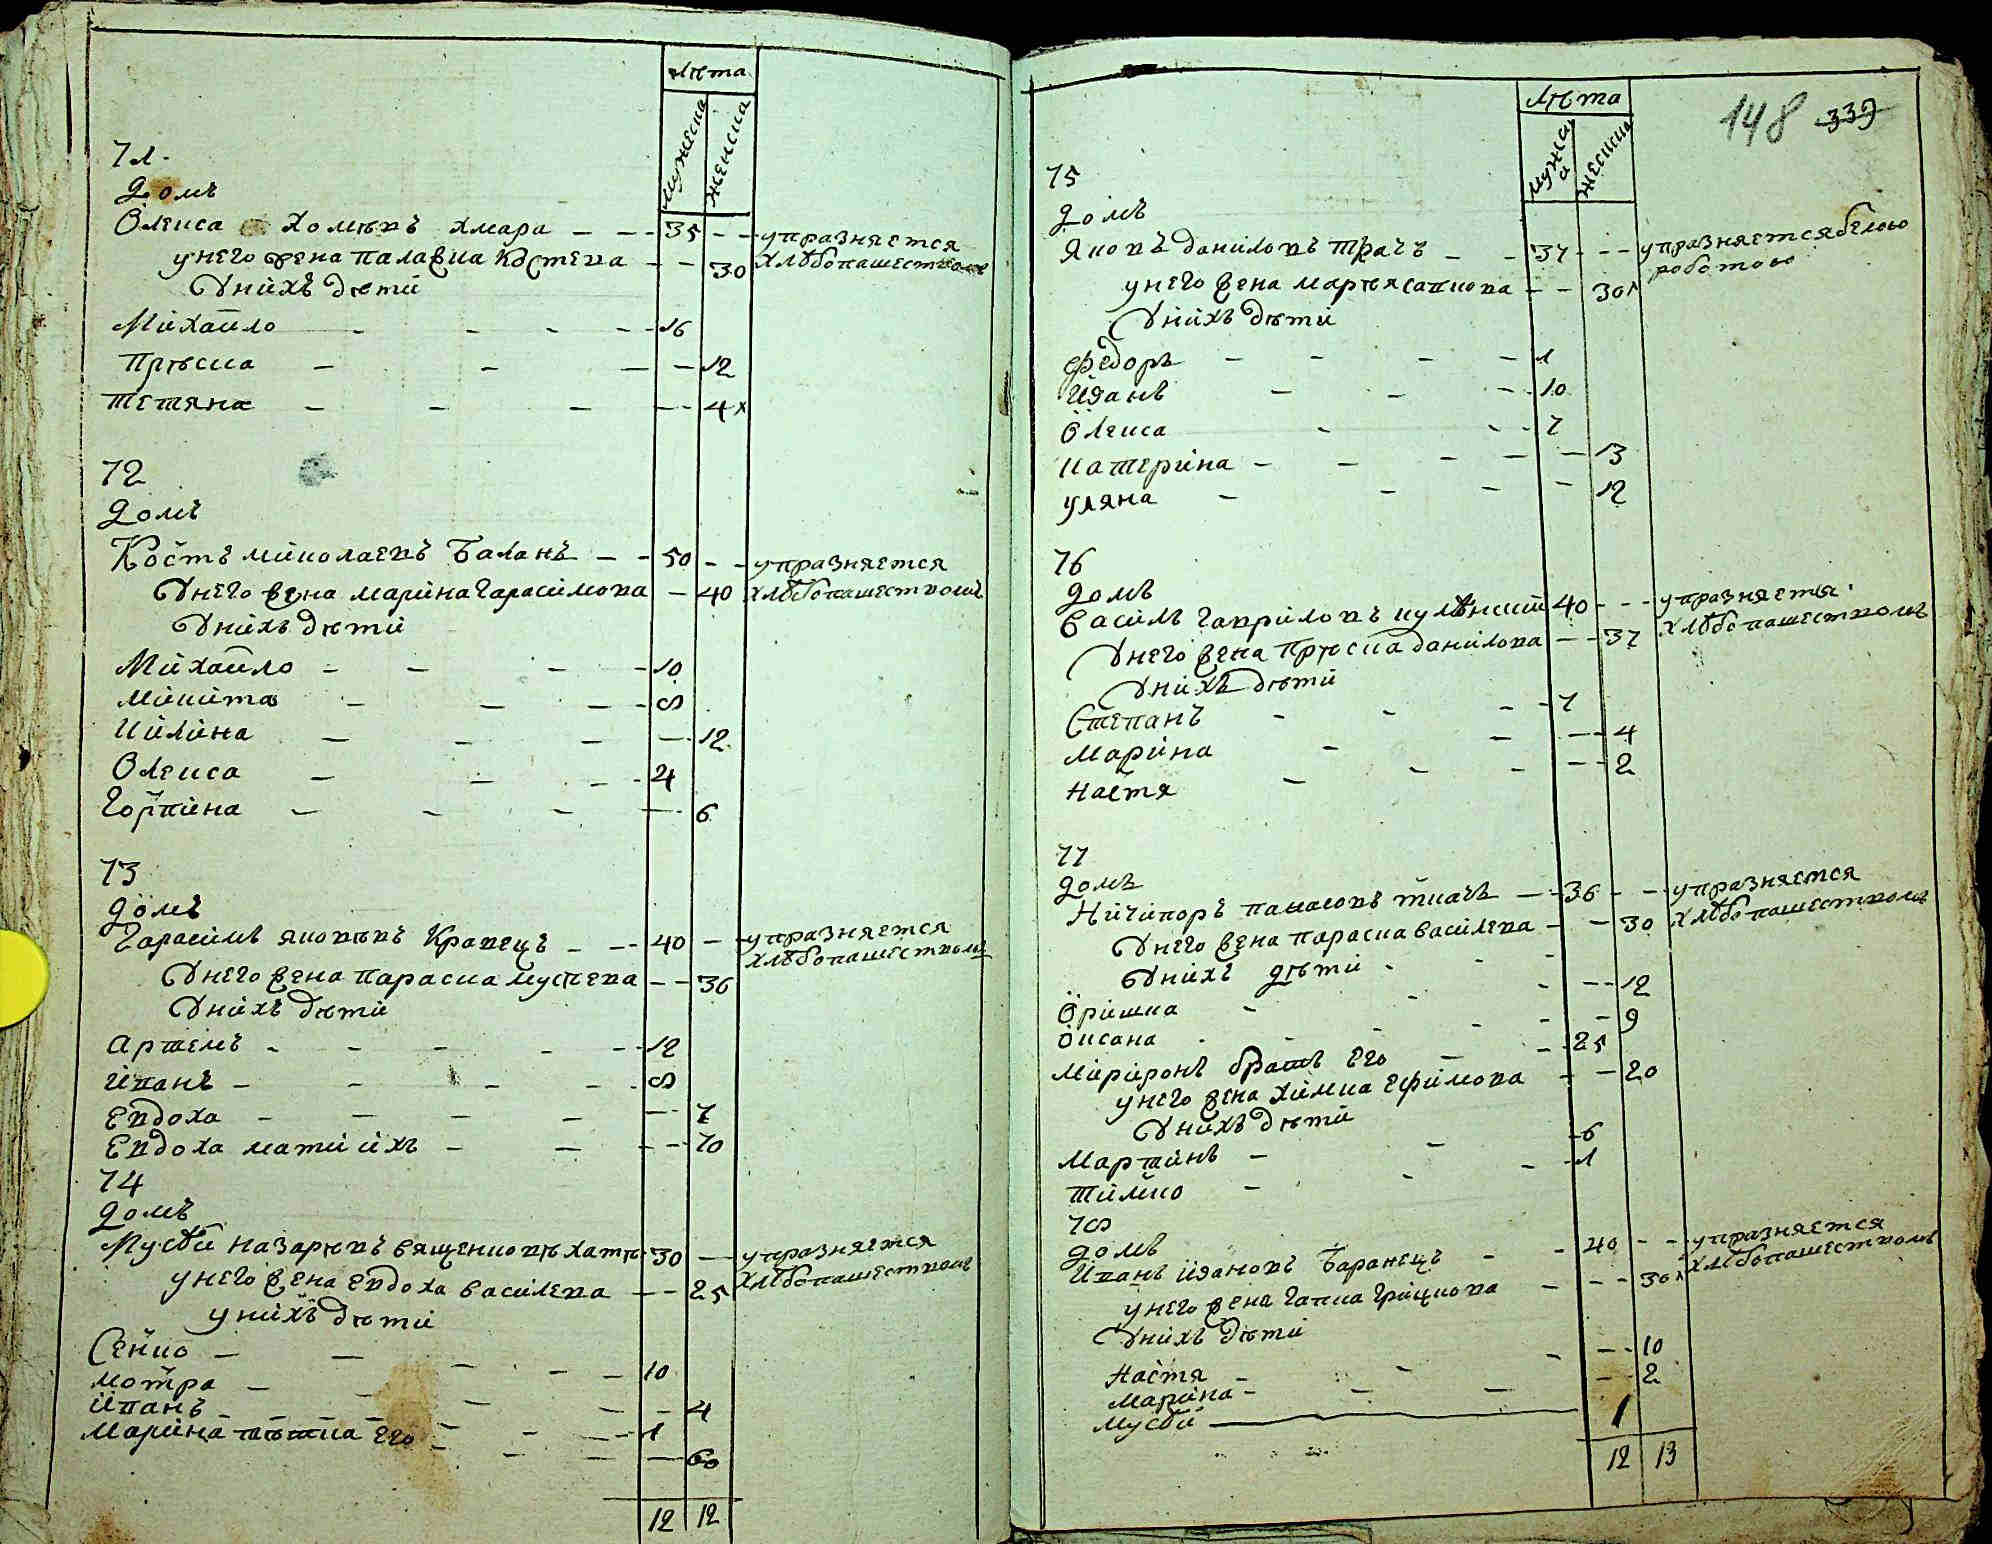 лѣта
мужеска женска
71.
Домъ
Олекса Хомѣвъ Хмара — — 35 — — упразняется
у него жена Палажка Костева — — 30 хлѣбопашествомъ
У нихъ дѣти
Михайло — — — — 16
Прѣска — — — — 12
Тетяна — — — — 4
72
Домъ
Кость Миколаевъ Баланъ — — 50 — — упразняется
У него жена Марина Гарасимова — 40 хлѣбопашествомъ
У нихъ дѣти
Михайло — — — — 10
Микита — — — — 8
Килина — — — — 12
Олекса — — — — 4
Горпина — — — — 6
73
Домъ
Гарасимъ Яковѣвъ Кравецъ — — 40 — — упразняется
хлѣбопашествомъ
У него жена Параска Мусѣева — — 36
У нихъ дѣти
Артемъ — — — — 12
Иванъ — — — — 8
Евдоха — — — — 7
Евдоха мати ихъ — — — — 70
74
Домъ
Мусѣй Назарѣвъ вященковѣ хатѣ 30 — упразняется
у него жена Евдоха Василева — — 25 хлѣбопашествомъ
у нихъ дѣти
Сенко — — — — 10
Мотра — — — — 4
Иванъ — — — — 1
Марина тѣтка Его — — — — 60
12 12
148 339
лѣта
мужск женска
75
Домъ
Яковъ Даниловъ Трачъ — — 37 — — упразняется белою
роботою
у него жена Марѣя Сапкова — — 30
У нихъ дѣти
Федоръ — — — — 1
Иванъ — — — — 10
Олекса — — 7
Катерина — — — — 13
Уляна — — — — 12
76
Домъ
Василь Гавриловъ Кулѣнский 40 — — упразняется
У него жена Прѣска Данилова — — 37 хлѣбопашествомъ
У нихъ дѣти
Степанъ — — — 7
Марина — — — 4
Настя — — — — 2
77
Домъ
Ничипоръ Панасовъ Ткачъ — — 36 — — упразняется
У него жена Параска Василева — — 30 хлѣбопашествомъ
У нихъ дѣти
Оришка — — — 12
Оксана — — — — 9
Миронъ братъ Его — — 25
у него жена Химка Ефимова — — 20
У нихъ дѣти
Мартинъ — — 6
Тимко — — — 1
78
Домъ
Иванъ Ивановъ Баранецъ — — 40 — — упразняется
у него жена Гапка Грицкова — — — 30 хлѣбопашествомъ
У нихъ дѣти
Настя — — — 10
Марина — — — 2
Мусѣй — 1
12 13